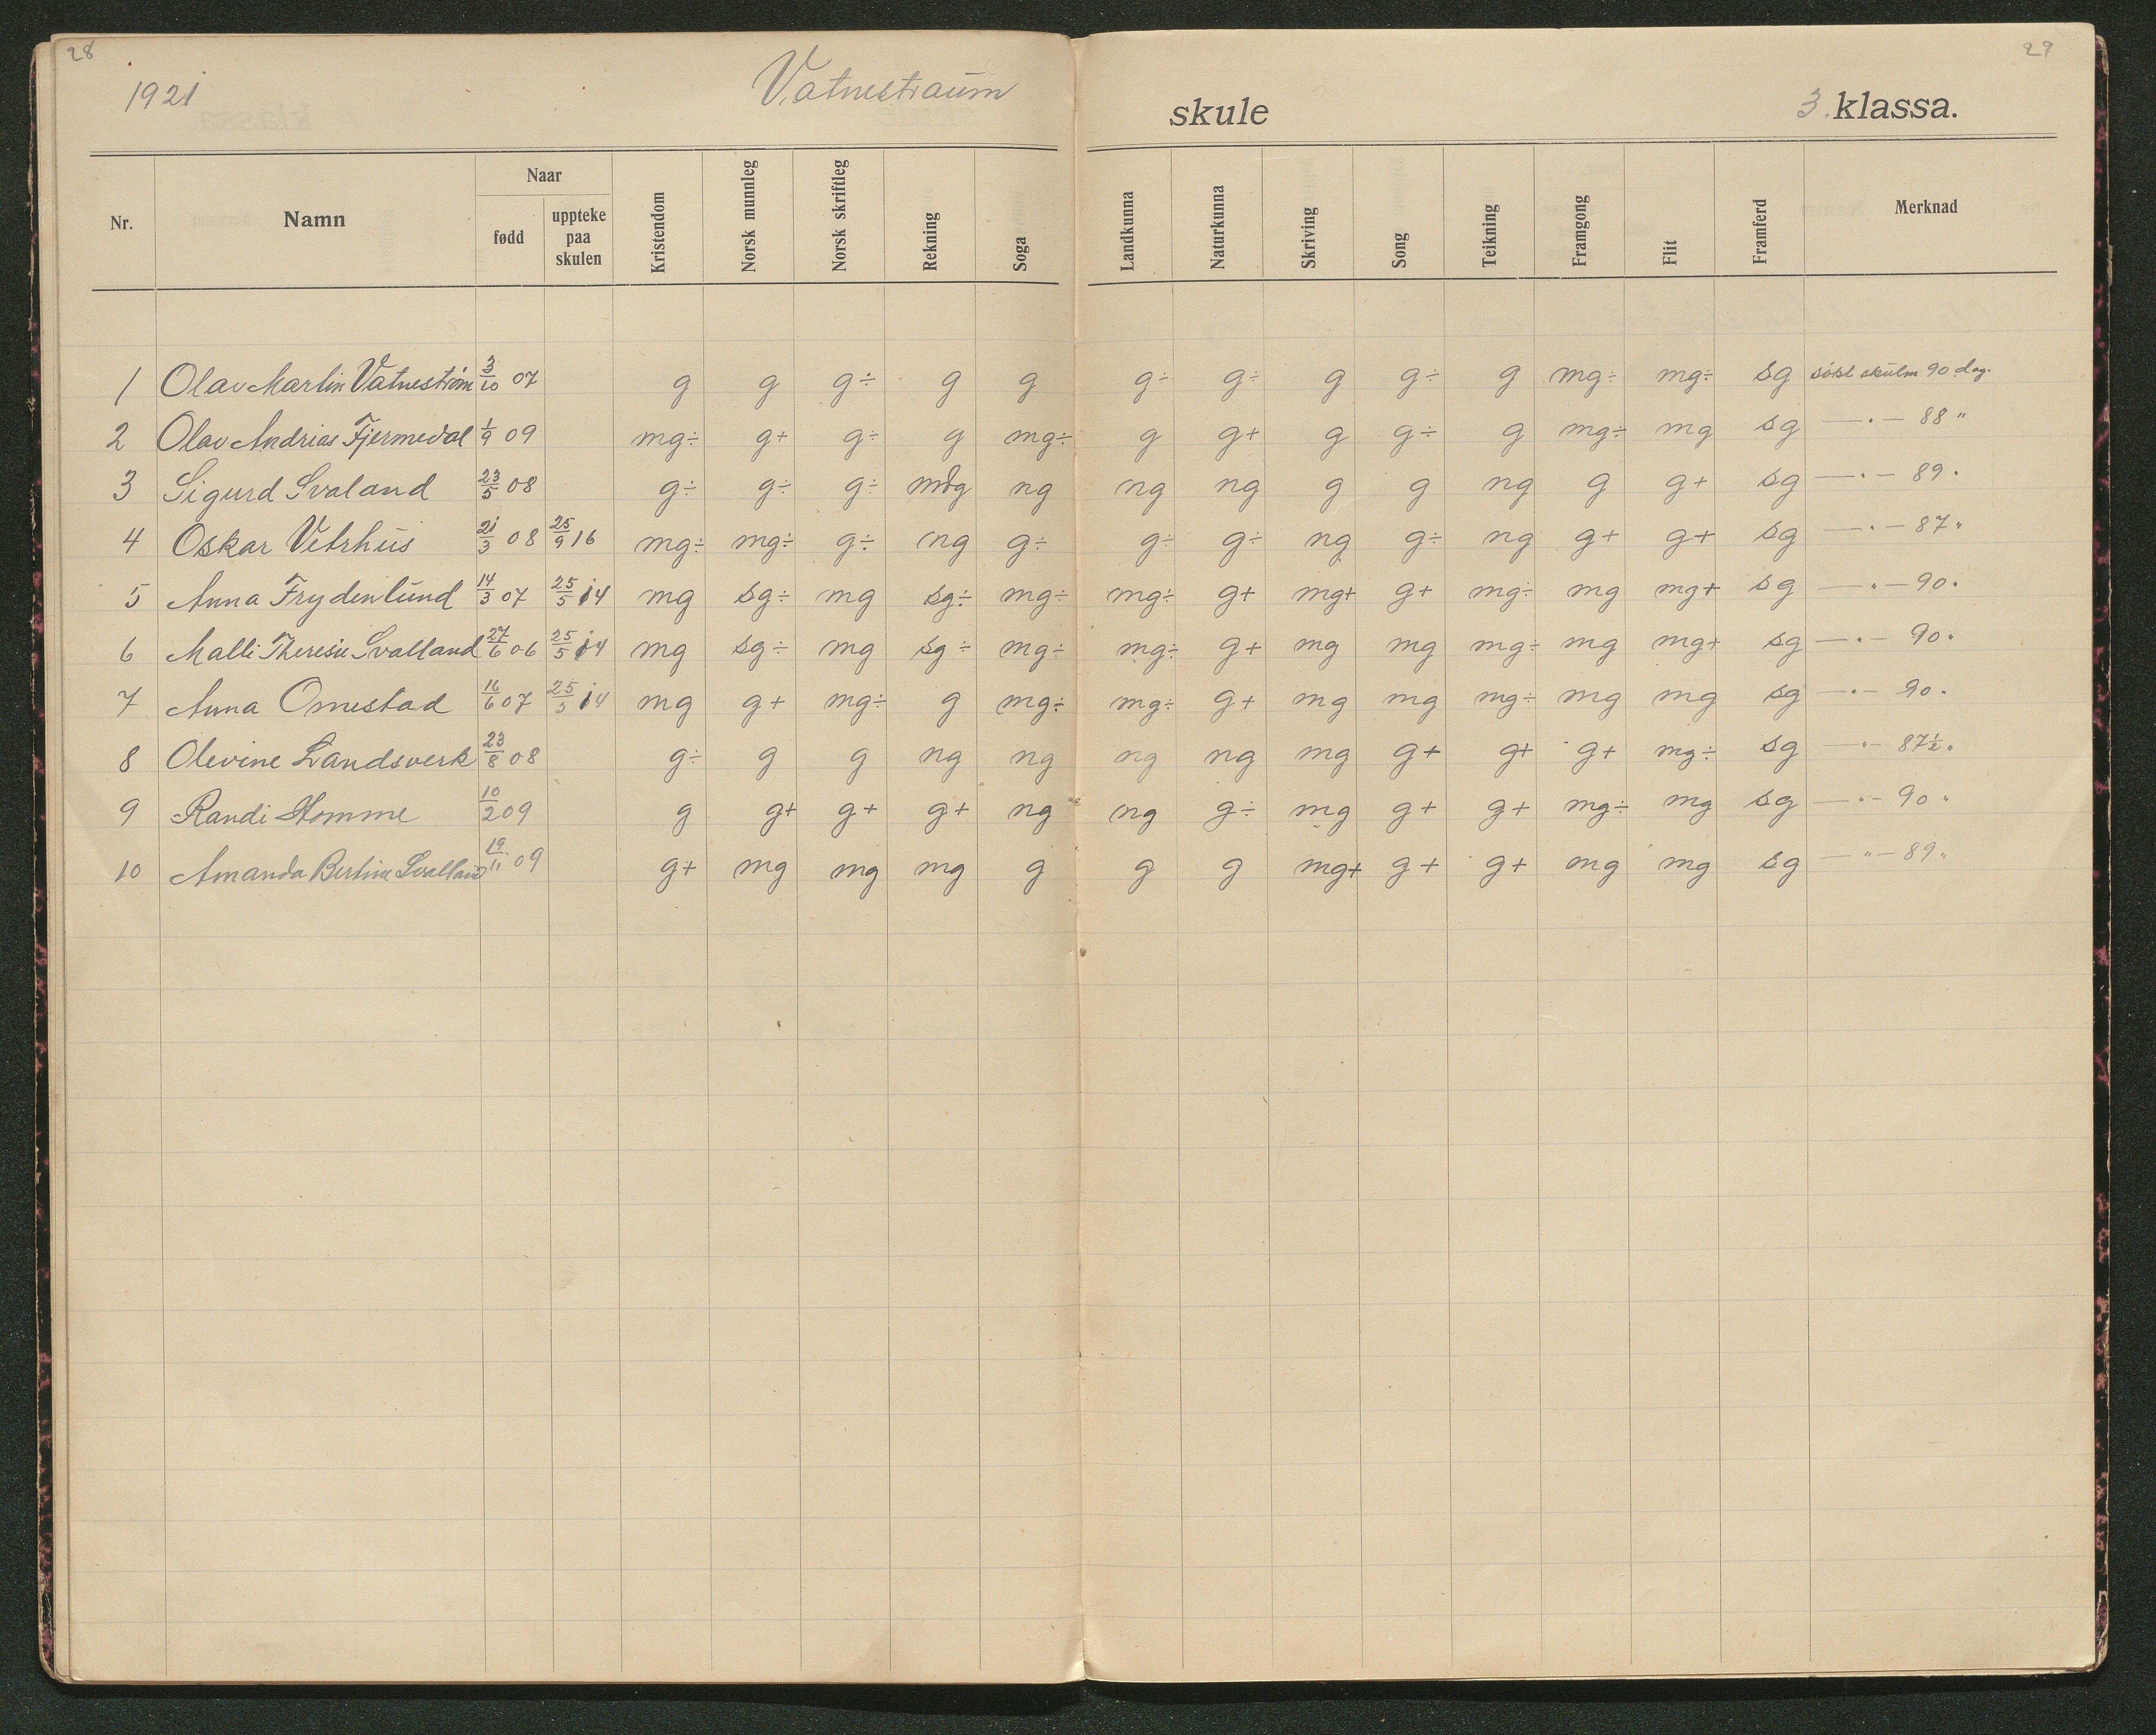 28
29
1921 Vatnestraum skule 3. klassa.
Nr. Namn Naar fødd uppteke paa skulen Kristendom Norsk munnleg Norsk skriftleg Rekning Soga Landkunna Naturkunna Skriving Song Teikning Framgong Flit Framferd Merknad
1 Olav Martin Vatnestrøm 3/10 07 g g g÷ g g g÷ g÷ g g÷ g mg÷ mg÷ sg søkt skulen 90 dag.
2 Olav Andrias Fjermedal 1/9 09 mg÷ g+ g÷ g mg÷ g g+ g g÷ g mg÷ mg sg —"— 88 "
3 Sigurd Svaland 23/5 08 g÷ g÷ g÷ ng ng ng g g ng g g+ sg —"— 89 "
4 Oskar Vetrhus 21/3 08 25/9 16 mg÷ mg÷ g÷ ng g÷ g÷ g÷ ng g÷ ng g+ g+ sg —"— 87 "
5 Anna Frydenlund 14/3 07 25/5 14 mg sg÷ mg sg÷ mg÷ mg÷ g+ mg+ g+ mg÷ mg mg+ sg —"— 90 "
6 Malli Theresie Svalland 27/6 06 25/5 14 mg sg÷ mg sg÷ mg÷ mg÷ g+ mg mg mg÷ mg mg+ sg —"— 90 "
7 Anna Omestad 16/6 07 25/5 14 mg g+ mg÷ g mg÷ mg÷ g+ mg mg mg÷ mg mg sg —"— 90 "
8 Olevine Landsverk 23/8 08 g÷ g g ng ng ng ng mg g+ g+ g+ mg÷ sg —"— 87½ "
9 Randi Homme 10/2 09 g g+ g+ g+ ng ng g÷ mg g+ g+ mg÷ mg sg —"— 90 "
10 Amanda Bertine Svalland 19/11 09 g+ mg mg mg g g g mg+ g+ g+ mg mg sg —"— 89 "